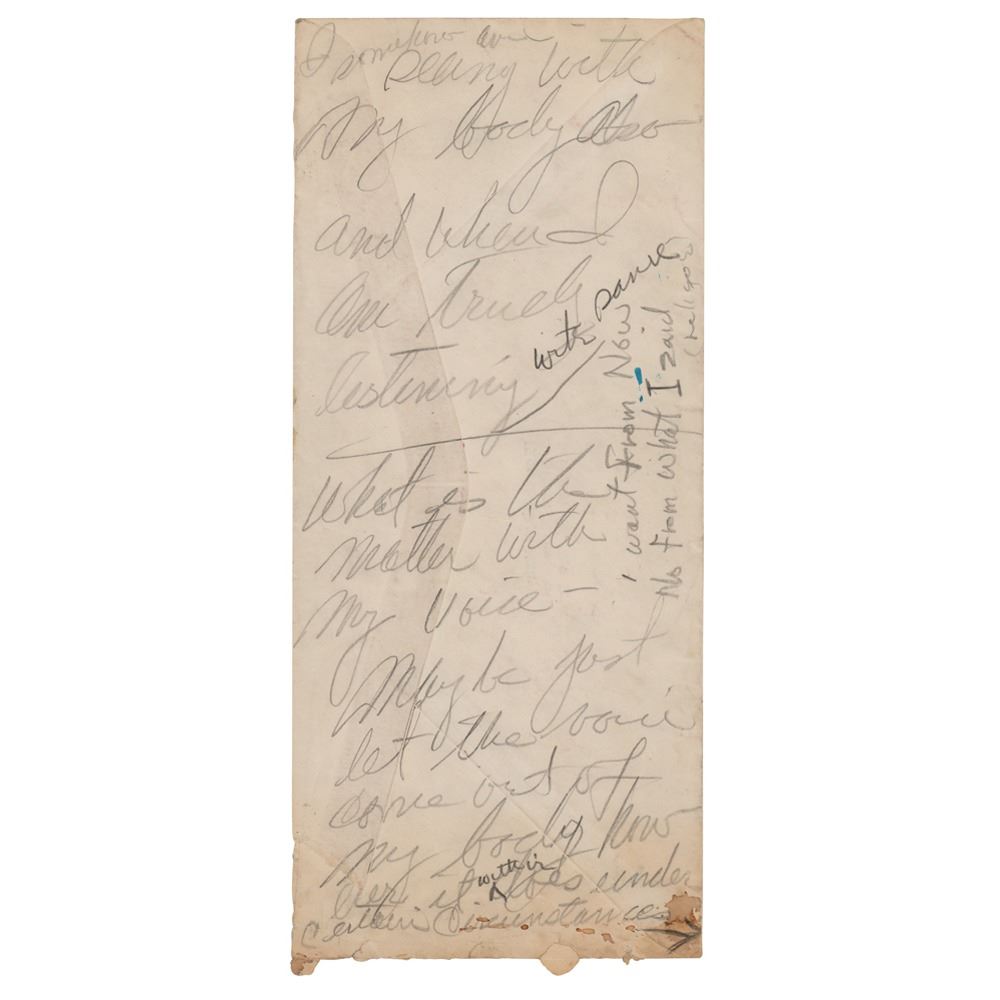 I somehow am
seeing with
my body also
and when I
am truely
listening
with same
what is the
matter with
my voice –
Maybe just
let the voice
come out of
my body how
ever it does under
within
certain circumstances
I want From Now
No From what I said